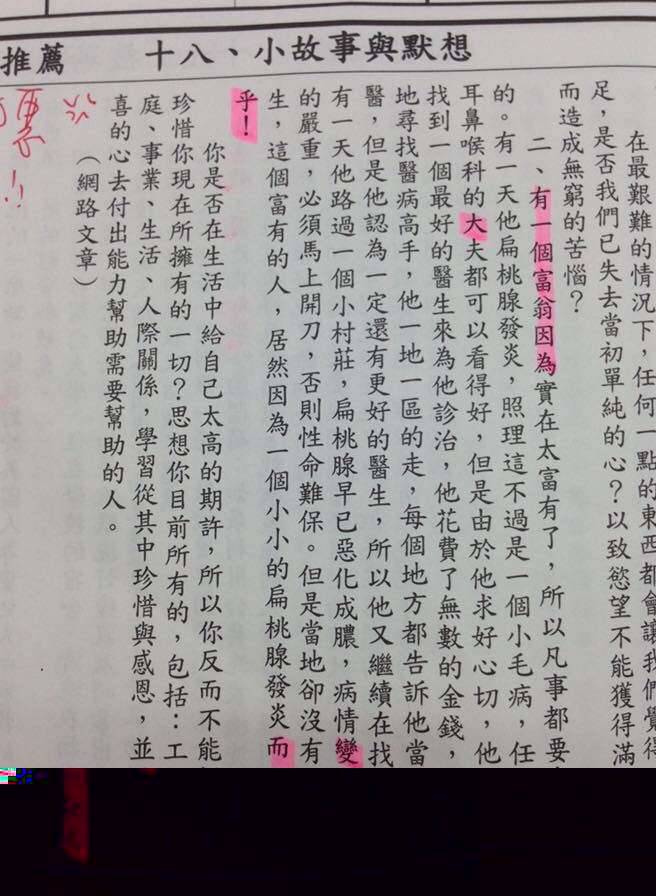 推薦
十八、小故事與默想
在最艱難的情況下，任何一點的東西都會讓我們覺得
足，是否我們已失去當初單純的心？以致慾望不能獲得滿
而造成無窮的苦惱？
二、有一個富翁因為實在太富有了，所以凡事都要
的。有一天他扁桃腺發炎，照理這不過是一個小毛病，任
耳鼻喉科的大夫都可以看得好，但是由於他求好心切，他
找到一個最好的醫生來為他診治，他花費了無數的金錢，
地尋找醫病高手，他一地一區的走，每個地方都告訴他當
醫，但是他認為一定還有更好的醫生，所以他又繼續在找
有一天他路過一個小村莊，扁桃腺早已惡化成膿，病情變
的嚴重，必須馬上開刀，否則性命難保。但是當地卻沒有
生，這個富有的人，居然因為一個小小的扁桃腺發炎而
乎！
你是否在生活中給自己太高的期許，所以你反而不能
珍惜你現在所擁有的一切？思想你目前所有的，包括：工
庭、事業、生活、人際關係，學習從其中珍惜與感恩，並
喜的心去付出能力幫助需要幫助的人。
（網路文章）